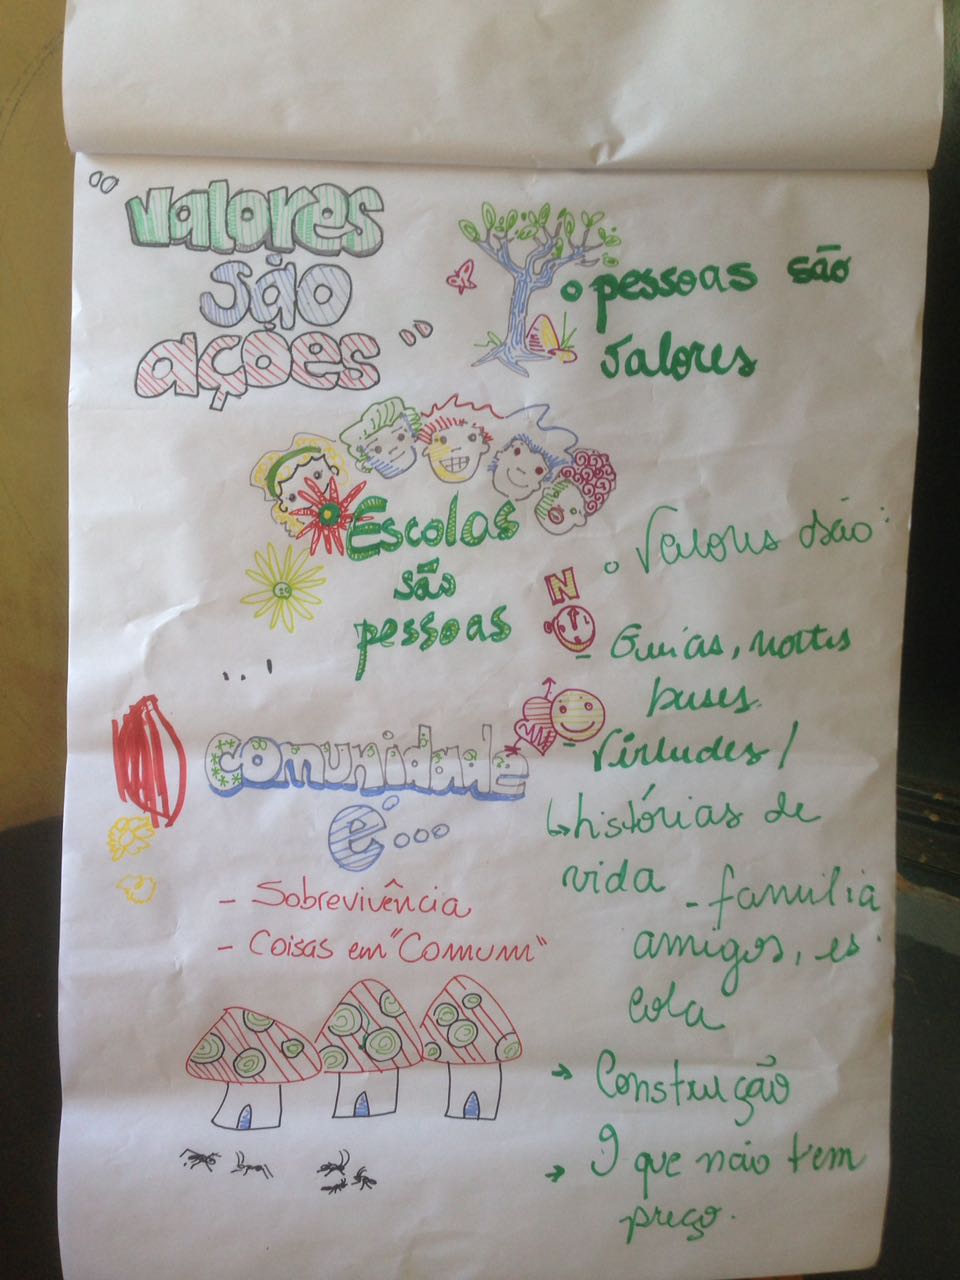 "Valores
são
ações"
pessoas são
valores
Escolas
são
pessoas
...!
Comunidade
é...
- Sobrevivência
- Coisas em "Comum"
Valores são:
N
- Guias, nortes
bases.
- Virtudes/
↳ histórias de
vida - família
amigos, es
cola
→ Construção
→ O que não tem
preço.